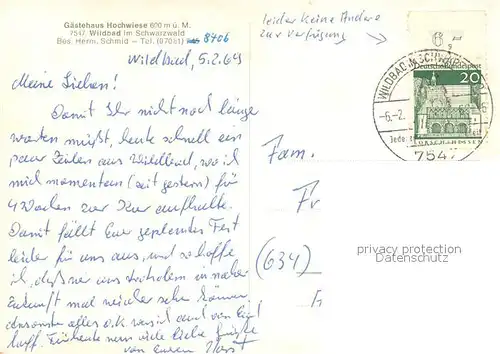 Gästehaus Hochwiese 600 m ü. M.
7547 Wildbad im Schwarzwald
Bes. Herm. Schmid – Tel. (07081) 8406
leider keine Andere
zur Verfügung
Wildbad, 5.2.69
Meine Lieben!
Damit Ihr nicht noch länger
warten müßt, heute schnell ein
paar Zeilen aus Wildbad, wo ich
mich momentan (seit gestern) für
4 Wochen zur Kur aufhalte.
Damit fällt Euer geplantes Fest
leider für uns aus, und so hoffe
ich, daß wir uns trotzdem in naher
Zukunft mal wieder sehen können,
ansonsten alles o.k. was ich auch von Euch
hoffe. Für heute nun viele liebe Grüße
von Eurem Horst
Fam.
Fr
(634)
WILDBAD IM SCHWARZW
-6.-2.
7547
Deutsche Bundespost
20
LORSCH/HESSEN
privacy protection
watermark